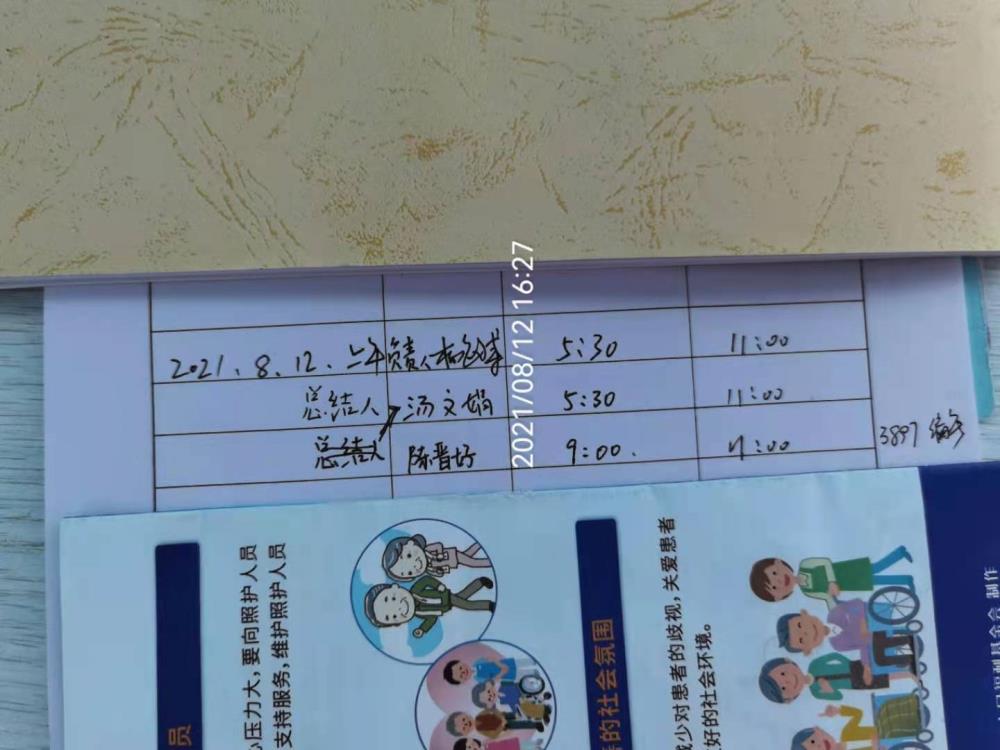 2021.8.12.上午 负责人 5:30 11:00
总结人 汤文娟 5:30 11:00
总结人 陈晋好 9:00. 11:00
3897
2021/08/12 16:27
员
心压力大,要向照护人员
支持服务,维护照护人员
的社会氛围
减少对患者的歧视,关爱患者
好的社会环境。
基金会 制作